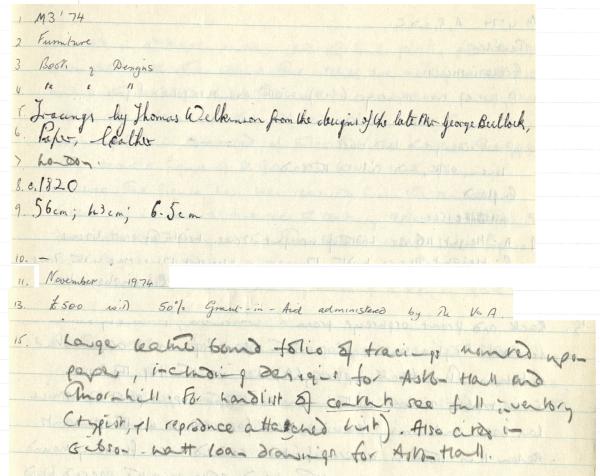 1 M3'74
2 Furniture
3 Book of Designs
4 " " "
5 Tracings by Thomas Wilkinson from the designs of the late Mr George Bullock,
6. Paper, leather
7 London.
8. c.1820
9. 56cm; 43cm; 6.5cm
10. —
11. November 1974
13. £500 with 50% Grant-in-Aid administered by the V&A.
15. Large leather bound folio of tracings mounted upon
paper, including designs for Aston Hall and
Thornhill. For handlist of contents see full inventory
(typist, pl reproduce attached list). Also cites in
Gibson-Watt loan drawings for Aston Hall.